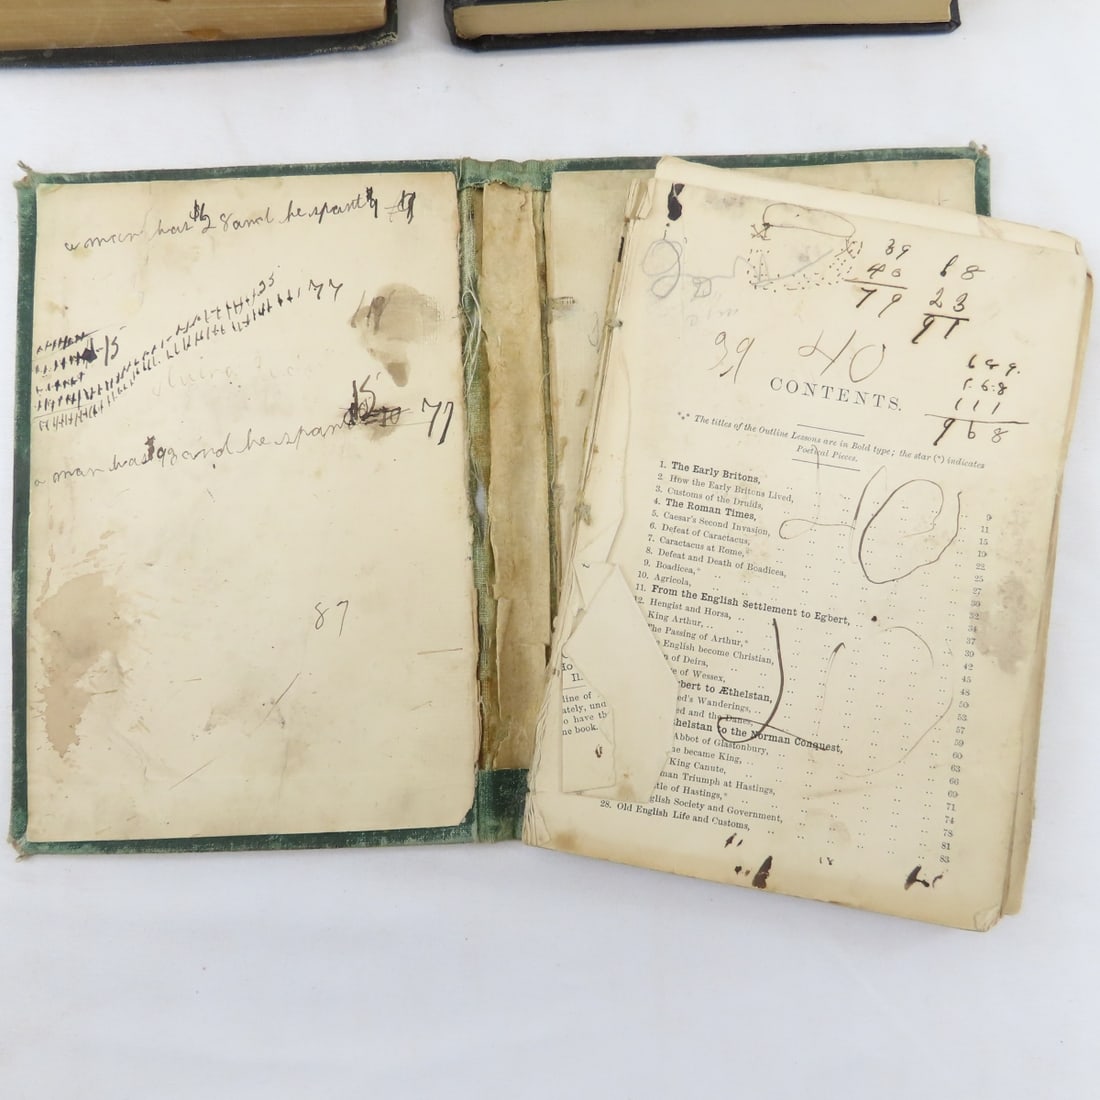 a man has $28 and he spant
25
77
15
a man has 93 and he spant
15
77
87
39
40
79
68
23
91
39 40
689.
168
111
968
CONTENTS.
*** The titles of the Outline Lessons are in Bold type; the star (*) indicates
Poetical Pieces.
1. The Early Britons, 9
2. How the Early Britons Lived, 11
3. Customs of the Druids, 15
4. The Roman Times, 19
5. Caesar's Second Invasion, 22
6. Defeat of Caractacus, 25
7. Caractacus at Rome, 27
8. Defeat and Death of Boadicea, 30
9. Boadicea,* 32
10. Agricola, 34
11. From the English Settlement to Egbert, 37
12. Hengist and Horsa, 39
King Arthur, 42
The Passing of Arthur,* 45
English become Christian, 48
n of Deira, 50
e of Wessex, 53
gbert to Æthelstan, 57
ed's Wanderings, 59
ed and the Danes, 60
thelstan to the Norman Conquest, 63
Abbot of Glastonbury, 66
he became King, 69
King Canute, 71
man Triumph at Hastings, 74
tle of Hastings,* 78
glish Society and Government, 81
28. Old English Life and Customs, 83
II.
line of
ately, und
o have th
ne book.